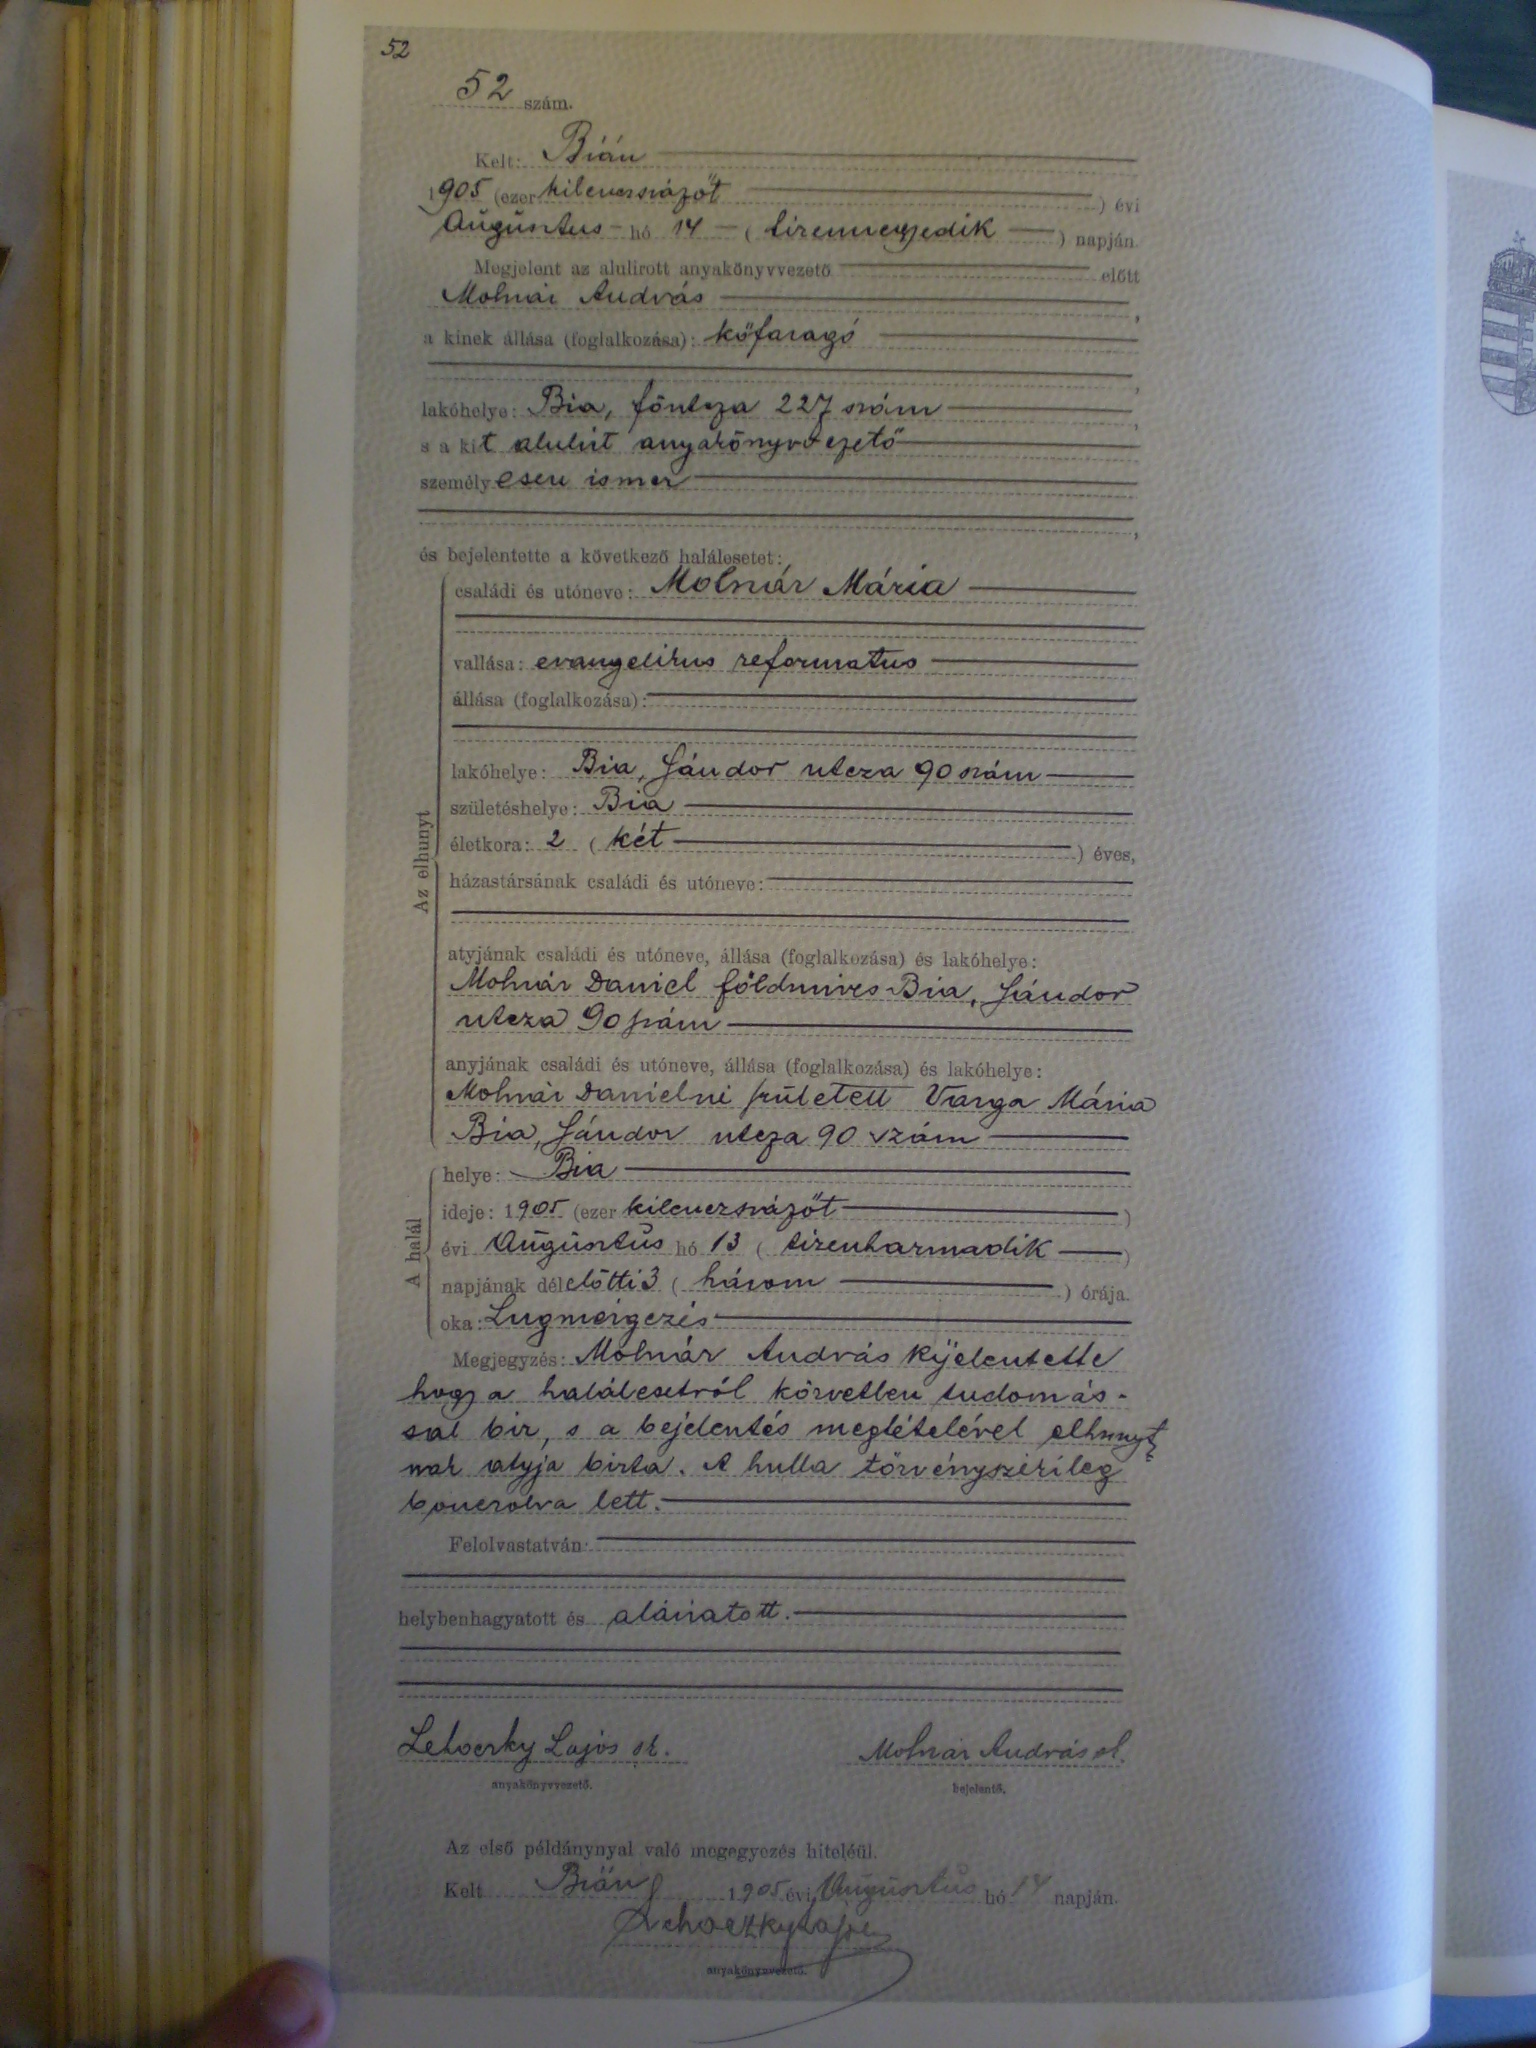 52
52 szám.
Kelt: Bián
1905 (ezer kilenczszázöt) évi
Augusztus hó 14 (tizennegyedik) napján
Megjelent az alulirott anyakönyvvezető előtt
Molnár András,
a kinek állása (foglalkozása): kőfaragó
,
lakóhelye: Bia, főutcza 227 szám,
s a kit alulirt anyakönyvvezető
személyesen ismer
,
és bejelentette a következő halálesetet:
Az elhunyt
családi és utóneve: Molnár Mária
vallása: evangelikus reformatus
állása (foglalkozása):
lakóhelye: Bia, Sándor utcza 90 szám
születéshelye: Bia
életkora: 2 (két) éves,
házastársának családi és utóneve:
atyjának családi és utóneve, állása (foglalkozása) és lakóhelye:
Molnár Daniel földmives Bia, Sándor
utcza 90 szám
anyjának családi és utóneve, állása (foglalkozása) és lakóhelye:
Molnár Danielné született Varga Mária
Bia, Sándor utcza 90 szám
A halál
helye: Bia
ideje: 1905 (ezer kilenczszázöt)
évi Augusztus hó 13 (tizenharmadik)
napjának délelőtti 3 (három) órája.
oka: Lugmérgezés
Megjegyzés: Molnár András kijelentette
hogy a halálesetről közvetlen tudomás-
sal bir, s a bejelentés megtételével elhunyt-
nak atyja bizta. A hulla törvényszérileg
bonczolva lett.
Felolvastatván
helybenhagyatott és aláiratott.
Lehoczky Lajos sk. Molnár András sk.
anyakönyvvezető. bejelentő.
Az első példánynyal való megegyezés hiteléül.
Kelt Bián 1905 évi Augusztus hó 14 napján.
Lehoczky Lajos
anyakönyvvezető.